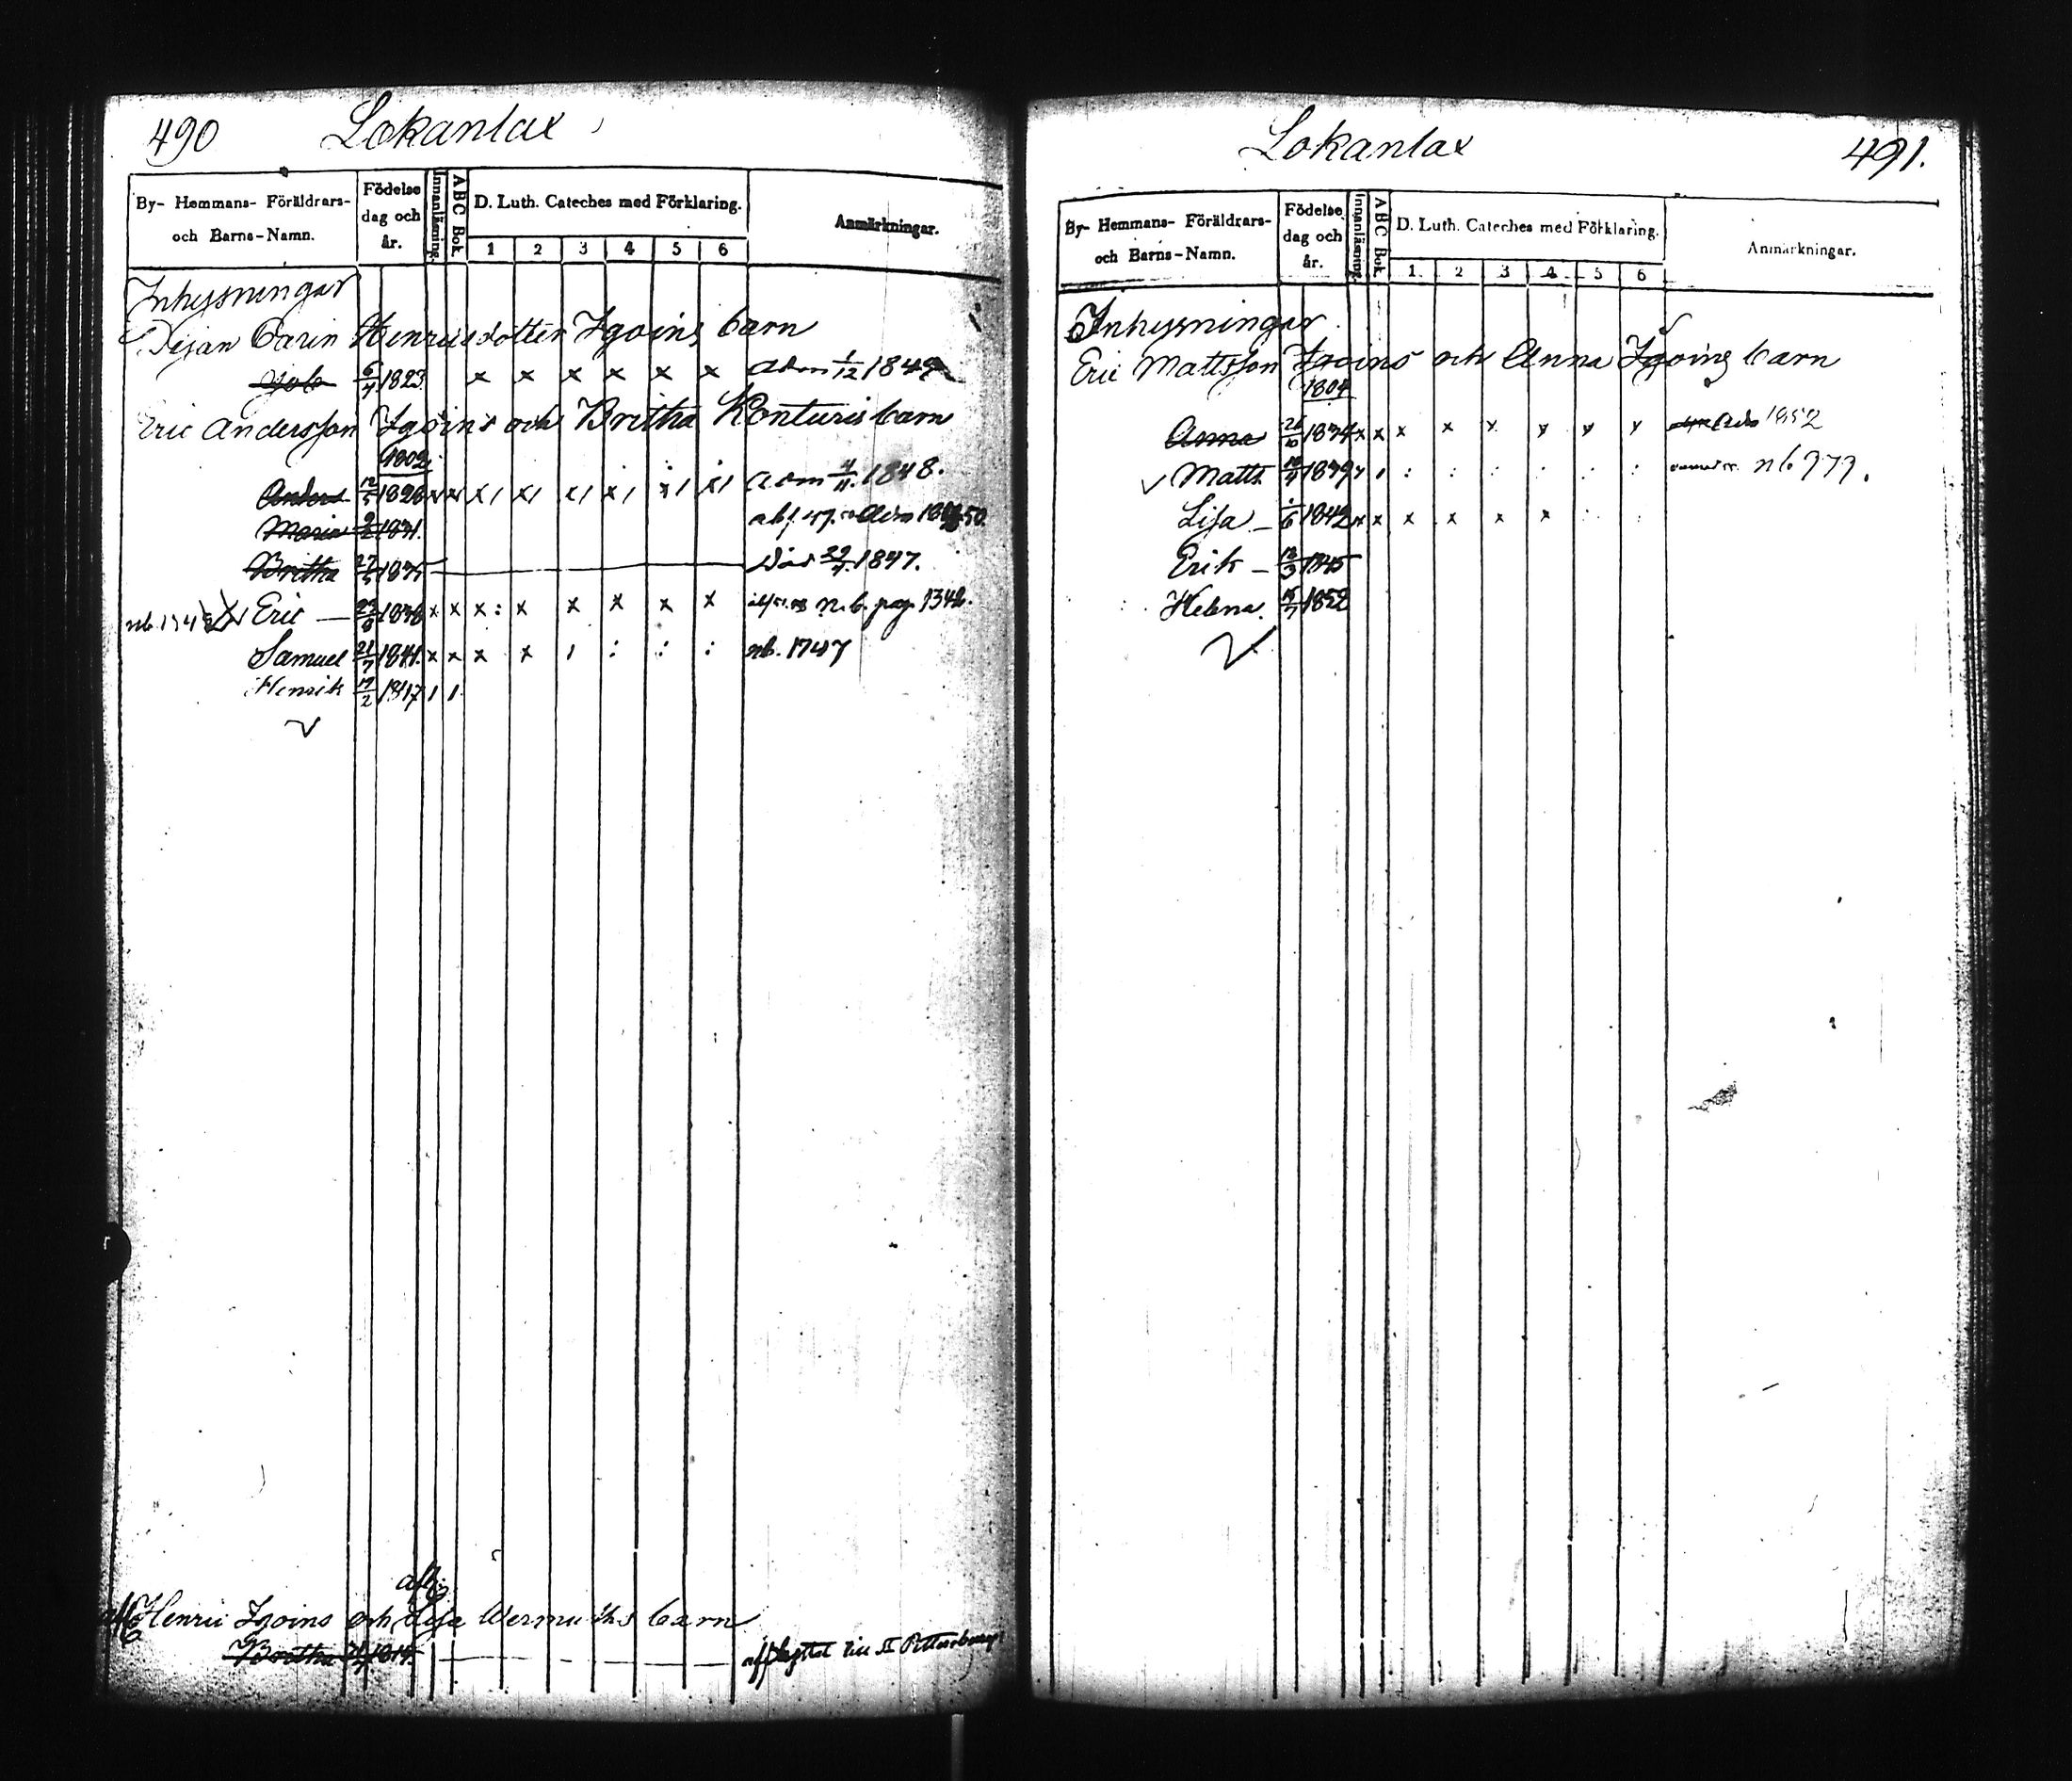 490 Lokanlax
By- Hemmans- Föräldrars- och Barns-Namn. Födelse dag och år. Innanläsning. A B C Bok. D. Luth. Cateches med Förklaring. Anmärkningar.
1 2 3 4 5 6
Inhysningar
Pigan Carin Henricsdotter Igoins barn
Job 6/4 1823 x x x x x x adm 1/12 1849
Eric Andersson Igoins och Britha Konturis barn
1802
Anders 12/5 1828 x x x1 x1 x1 x1 x1 x1 adm 4/11 1848.
Maria 9/2 1831.
Britha 27/5 1835 Död 29/4 1847.
Eric 1838 x x x: x x x x x n.b. pag. 1342.
Samuel 21/7 1841. x x x x ı : : : nb. 1747
Henrik 17/2 1847 1 1
Henric Igoins och Lisa Wermuths barn
Britha afflyttat till St Pettersburg
Lokanlax 491.
By- Hemmans- Föräldrars- och Barns-Namn. Födelse dag och år. Innanläsning. A B C Bok. D. Luth. Cateches med Förklaring. Anmärkningar.
1. 2 3 4 5 6
Inhysningar
Eric Mattsson Igoins och Anna Igoins barn
1804
Anna 26/10 1834 x x x x x x x x 1852
Matts 1839 nb 979.
Lisa 1/6 1842 x x x x x x : :
Erik 12/3 1845
Helena. 15/7 1852